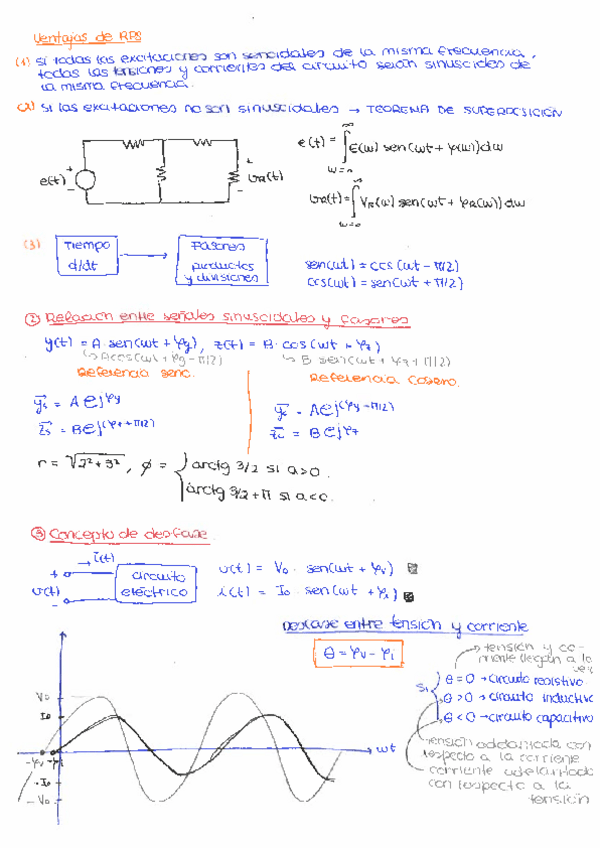 Ventajas de RPS
(1) Si todas las excitaciones son senoidales de la misma frecuencia,
todas las tensiones y corrientes del circuito serán sinusoides de
la misma frecuencia.
(2) Si las excitaciones no son sinusoidales → TEOREMA DE SUPERPOSICIÓN
e(t) = ∫ E(w) sen(wt + φ(w))dw
w=0
e(t) + - + - υR(t)
υR(t) = ∫ VR(w) sen(wt + φR(w)) dw
w=0
(3) Tiempo d/dt → Fasores productos y divisiones
sen(wt) = cos(wt - π/2)
cos(wt) = sen(wt + π/2)
② Relación entre señales sinusoidales y fasores
y(t) = A · sen(wt + φy), z(t) = B · cos(wt + φz)
↳ A cos(wt + φy - π/2) ↳ B sen(wt + φz + π/2)
Referencia seno. Referencia coseno.
ys = A e^j φy
zs = B e^j(φz + π/2)
yc = A e^j(φy - π/2)
zc = B e^j φz
r = √2²+3², φ = { arctg 3/2 si a>0.
arctg 3/2 + π si a<0.
③ Concepto de desfase
→ i(t)
+ υ(t) - circuito eléctrico
υ(t) = Vo · sen(wt + φv)
i(t) = Io · sen(wt + φi)
Desfase entre tensión y corriente
θ = φv - φi
→ tensión y co-
rriente llegan a la
vez
Si { θ = 0 → circuito resistivo
θ > 0 → circuito inductivo
θ < 0 → circuito capacitivo
tensión adelantada con
respecto a la corriente
corriente adelantada
con respecto a la
tensión
Vo
Io
-φv -φi wt
-Io
-Vo